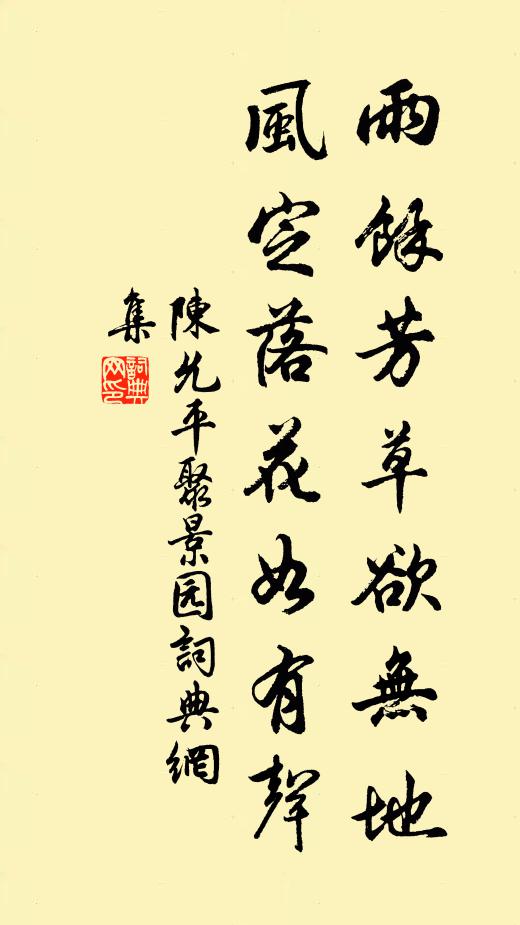 雨餘芳草欲無地
風定落花如有聲
陳允平聚景园詞典網
集
詞典
网印